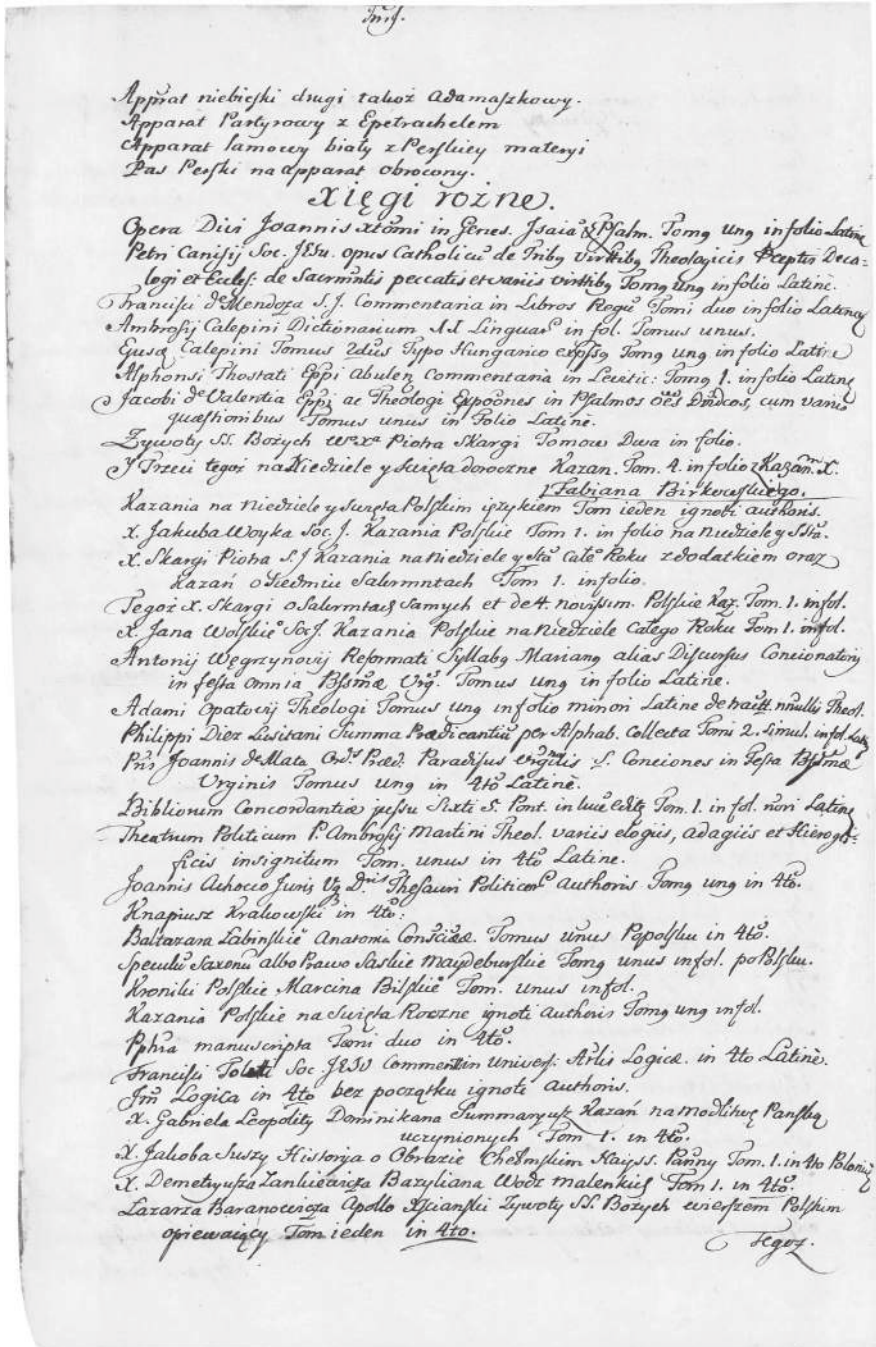 Apprat niebieski drugi takoż adamaszkowy.
Apparat Partyrowy z Epetrachelem
Apparat lamowy biały z Perskiey materyi
Pas Perski na apparat obrocony.
Xięgi rożne.
Opera Divi Joannis Xtomi in Genes. Jsaiā & Psalm. Tomq unq in folio Latine
Petri Canisij Soc. JEsu. opus Catholicū de Tribq virttibq Theologicis Pceptis Deca-
logi et Eccles: de Sacrmntis peccatis et variis virttibq Tomq unq in folio Latinè.
Francisci de Mendoza S.J. Commentaria in Libros Regū Tomi duo in folio Latine
Ambrosij Calepini Dictionarium XI Linguar in fol. Tomus unus.
Ejusq Calepini Tomus 2dus Typo Hungarico expssq Tomq unq in folio Latine
Alphonsi Thostati Eppi Abulen Commentaria in Levitic: Tomq 1. in folio Latine
Jacobi de Valentia Eppi ac Theologi Expoōnes in Psalmos oēs Dndcos, cum variis
quæstionibus Tomus unus in Folio Latinè.
Zywoty SS. Bożych W° X° Piotra Skargi Tomow Dwa in folio.
Y Trzeci tegoż na Niedziele y swięta doroczne Kazan. Tom. 4. in folio z Kazām X.
Fabiana Birkowskiego.
Kazania na Niedziele y swięta Polskim ięzykiem Tom ieden ignoti authoris.
X. Jakuba Woyka Soc. J. Kazania Polskie Tom 1. in folio na Niedziele y SStā.
X. Skargi Piotra S.J Kazania na Niedziele y Stā Całe° Roku z dodatkiem oraz
Kazań o Siedmiu Sakrmntach Tom 1. in folio.
Tegoż X. Skargi o Sakrmtach samych et de 4. novissim. Polskie Kaz. Tom. 1. in fol.
X. Jana Wolskie° Soc J. Kazania Polskie na Niedziele Całego Roku Tom 1. in fol.
Antonij Węgrzynovij Reformati Syllabq Marianq alias Discursus Concionatorij
in festa omnia Bssmæ Vrg. Tomus unq in folio Latine.
Adami Opatovij Theologi Tomus unq in folio minori Latine de tractt. nnullis Theol.
Philippi Diez Lusitani Summa Prædicantiū per Alphab. Collecta Tomi 2. simul. in fol. Lat.
Pris Joannis de Mata Ord. Præd. Paradisus Virginis S. Conciones in Festa Bssmæ
Vrginis Tomus unq in 4to Latinè.
Bibliorum Concordantiæ jussu Sixti 5. Pont. in luce editæ Tom. 1. in fol. nori Latine
Theatrum Politicum P. Ambrosij Martini Theol. variis elogiis, adagiis et Hierogli-
ficis insignitum Tom. unus in 4to Latine.
Joannis Achocio Juris D. Thesauri Politicor Authoris Tomq unq in 4to.
Knapiusz Krakowski in 4to:
Baltazara Labinskie° Anatomia Tomus unus Popolsku in 4to.
Speculū Saxonū albo Prawo Saskie Maydeburskie Tomq unus in fol. po Polsku.
Kroniki Polskie Marcina Bilskie° Tom. unus in fol.
Kazania Polskie na Swięta Roczne ignoti Authoris Tomq unq in fol.
manuscripta Tomi duo in 4to.
Francisci Toleti Soc. JESU Comment in univers. Artis Logicæ. in 4to Latinè.
Logica in 4to bez początku ignoti Authoris.
X. Gabriela Leopolity Dominikana Summaryusz Kazań na Modlitwę Panską
uczynionych Tom 1. in 4to.
X. Jakoba Suszy Historja o Obrazie Chełmskim Nayss. Panny Tom. 1. in 4to Polonicè
X. Demetryusza Zankiewicza Bazyliana Wodz malenkich Tom 1. in 4to.
Lazarza Baranowicza Apollo Xscianski Zywoty SS. Bożych wierszem Polskim
opiewaiący Tom ieden in 4to.
Tegoż.